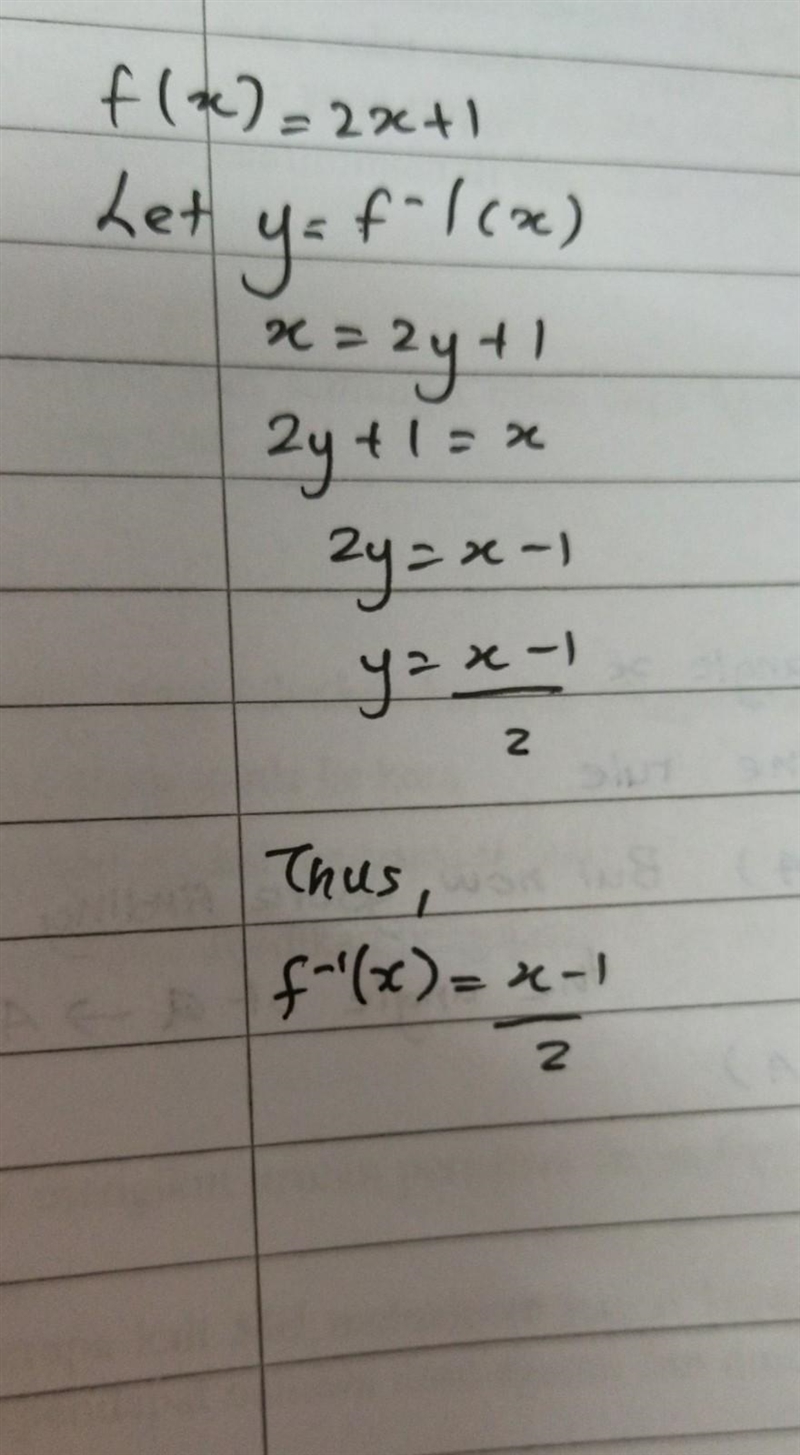 f(x) = 2x + 1
Let y = f⁻¹(x)
x = 2y + 1
2y + 1 = x
2y = x - 1
y = x - 1
2
Thus,
f⁻¹(x) = x - 1
2
rule
But now